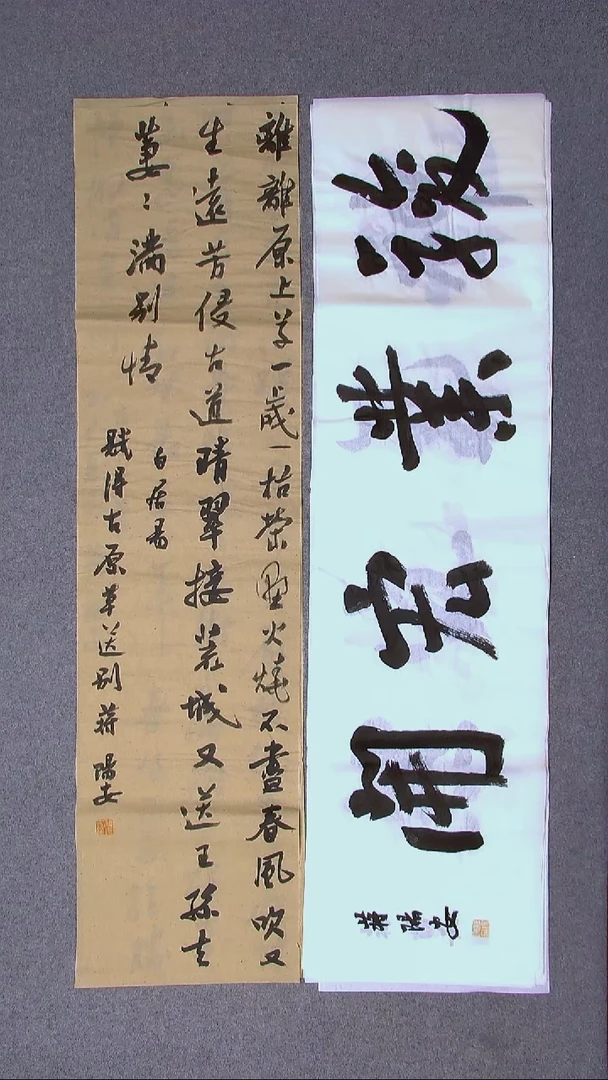 離離原上草一歲一枯榮野火燒不盡春風吹又
生遠芳侵古道晴翠接荒城又送王孫去
萋〻滿别情
白居易
賦得古原草送别 蒋陽安
業宏開
蒋陽安